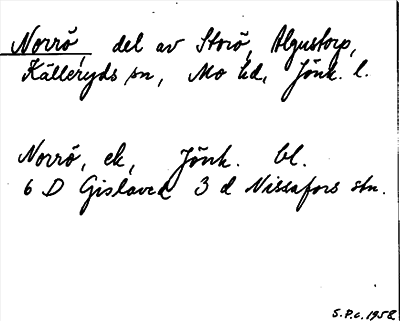 Norrö, del av Storö, Algustorp,
Källeryds sn, Mo hd, Jönk. l.
Norrö, ek, Jönk. bl.
6 D Gislaved 3 d Nissafors stn.
S.P.c. 1958